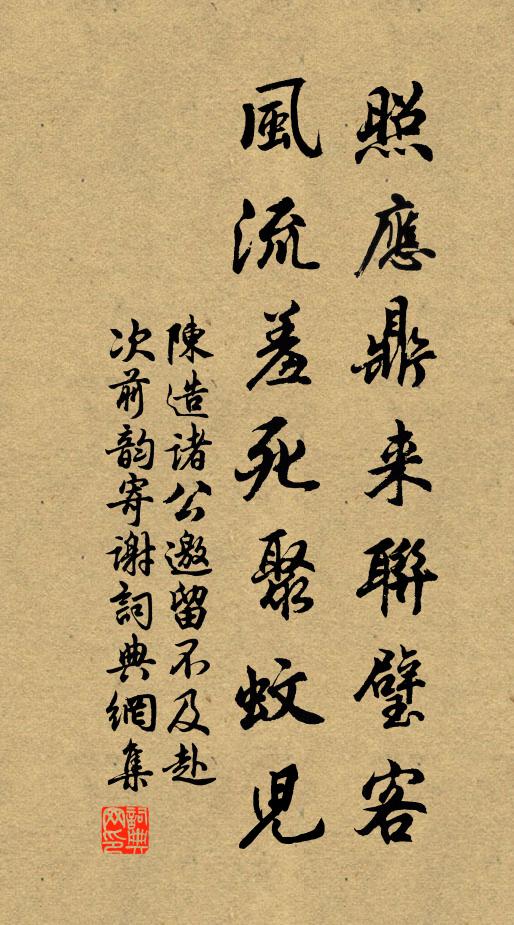 照應鼎来聯璧客
風流羞死聚蚊児
陳造諸公邀留不及赴
次前韵寄謝詞典網集
詞典网印